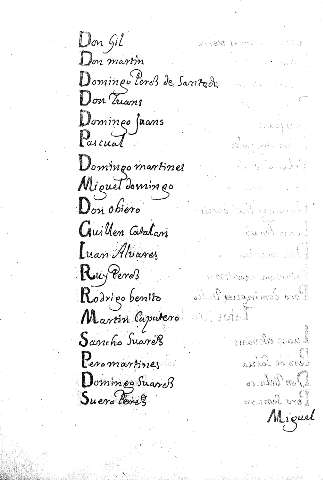 Don Gil
Don martin
Domingo Perez de
Don Juans
Domingo Juans
Pascual
Domingo martines
Miguel domingo
Don obiero
Guillen Catalan
Iuan Alvares
Ruy Perez
Rodrigo benito
Martin Caputero
Sancho Suarez
Pero martines
Domingo Suarez
Suero Perez
Miguel